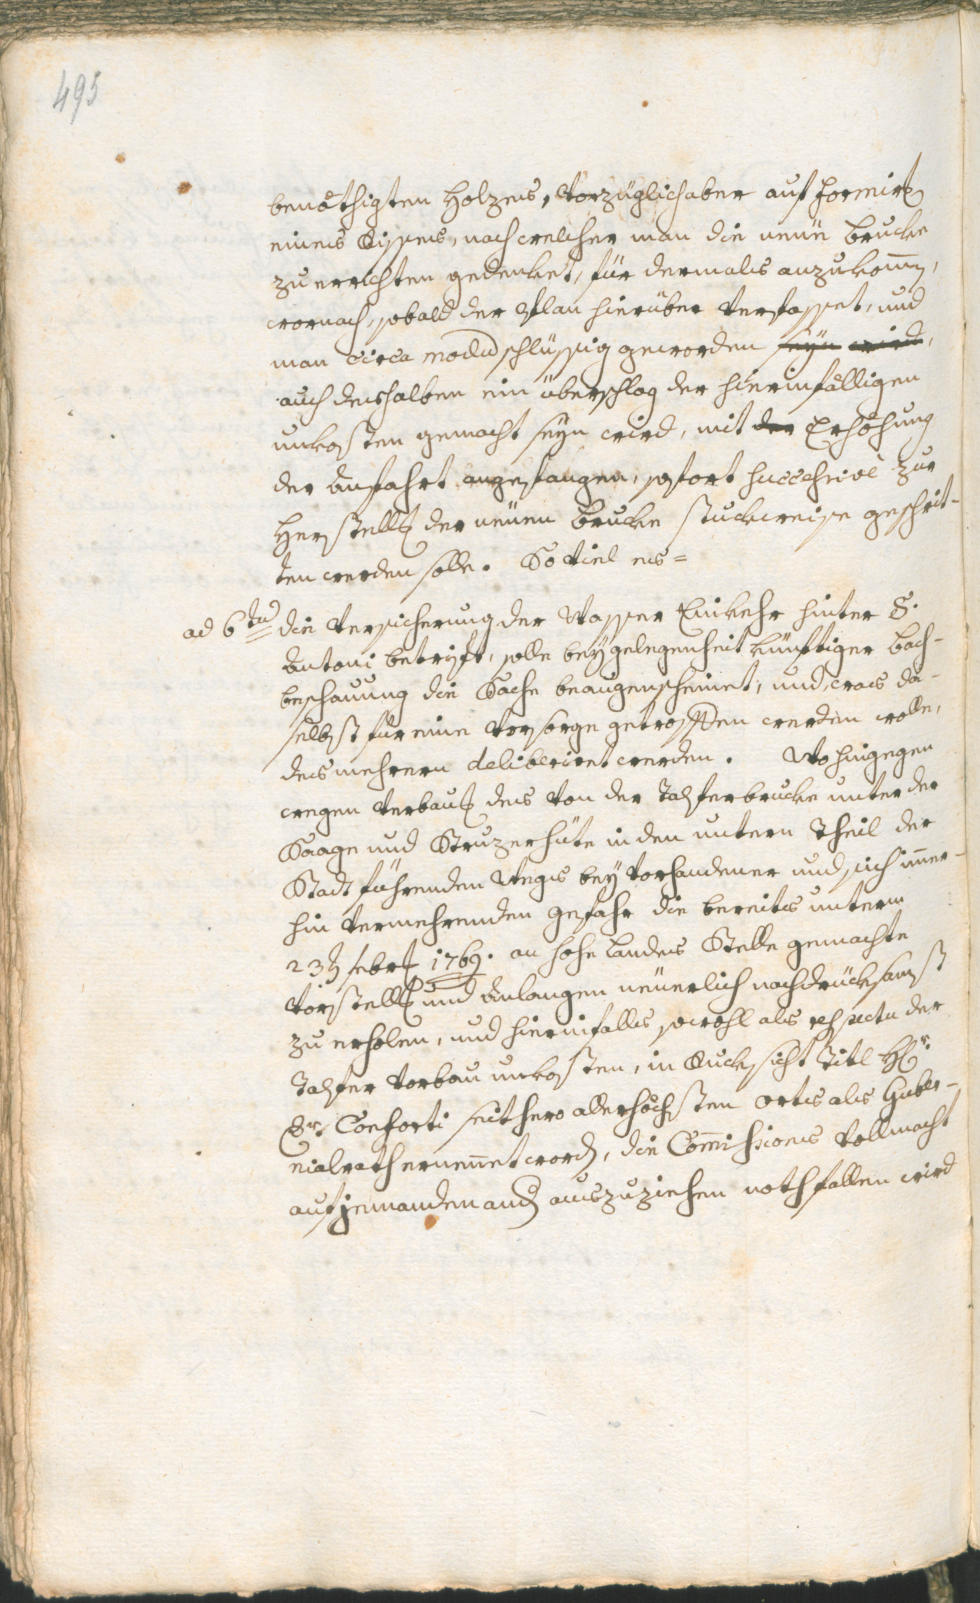 495
benöthigten Holzens, vorzüglich aber auf Formirũg
eines Risses, nach welcher man die neüe Brucke
zu errichten gedenket, für dermals anzukom̃en,
wornach, sobald der Plan hierüber verfasset, und
man circa modu schlüssig geworden seÿn wird,
auch desshalben ein überschlag der hierinfälligen
unkosten gemacht seÿn wird, mit der Erhöhung
der Anfahrt angefangen, sofort successivè zur
Herstellũg der neüen Brucke stuckweise geschrit-
ten werden solle. So viel es=
ad 6tu die versicherung der Wasser Einkehr hinter S.
Antoni betrift, solle beÿ gelegenheit künftiger bach-
beschauung die Sache beaugenscheinet, und was da-
selbst für eine Vorsorge getroffen werden wolle,
des mehrern deliberiret werden. Wohingegen
wegen verbauũg des von der Talferbrucke unter der
Saage und Struzerhüte in den untern Theil der
Stadt führenden Wegs beÿ vorhandener und sich im̃er-
hin vermehrenden gefahr die bereits unterm
23ten febrj 1769. an hohe Landes Stelle gemachte
Vorstellũg und Anlangen neüerlich nachdrücksamst
zu erholen, und hierinfalls sowohl als respectu der
Talfer vorbau unkosten, in Rucksicht Titl Hr.
Gr. Conforti seithero allerhöchsten orts als Guber-
nialrath ernennet word, die Com̃issions Vollmacht
auf jemanden and auszuziehen noth fallen wird